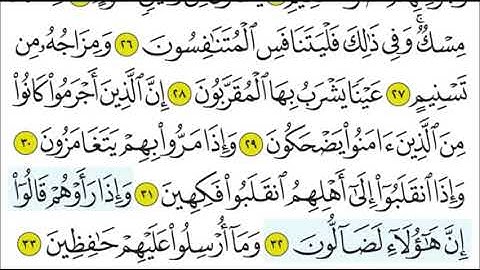 مِسْكٌۚ وَفِي ذَٰلِكَ فَلْيَتَنَافَسِ ٱلْمُتَنَٰفِسُونَ ٢٦ وَمِزَاجُهُۥ مِن
تَسْنِيمٍ ٢٧ عَيْنًا يَشْرَبُ بِهَا ٱلْمُقَرَّبُونَ ٢٨ إِنَّ ٱلَّذِينَ أَجْرَمُوا۟ كَانُوا۟
مِنَ ٱلَّذِينَ ءَامَنُوا۟ يَضْحَكُونَ ٢٩ وَإِذَا مَرُّوا۟ بِهِمْ يَتَغَامَزُونَ ٣٠
وَإِذَا ٱنقَلَبُوٓا۟ إِلَىٰٓ أَهْلِهِمُ ٱنقَلَبُوا۟ فَكِهِينَ ٣١ وَإِذَا رَأَوْهُمْ قَالُوٓا۟
إِنَّ هَٰٓؤُلَآءِ لَضَآلُّونَ ٣٢ وَمَآ أُرْسِلُوا۟ عَلَيْهِمْ حَٰفِظِينَ ٣٣